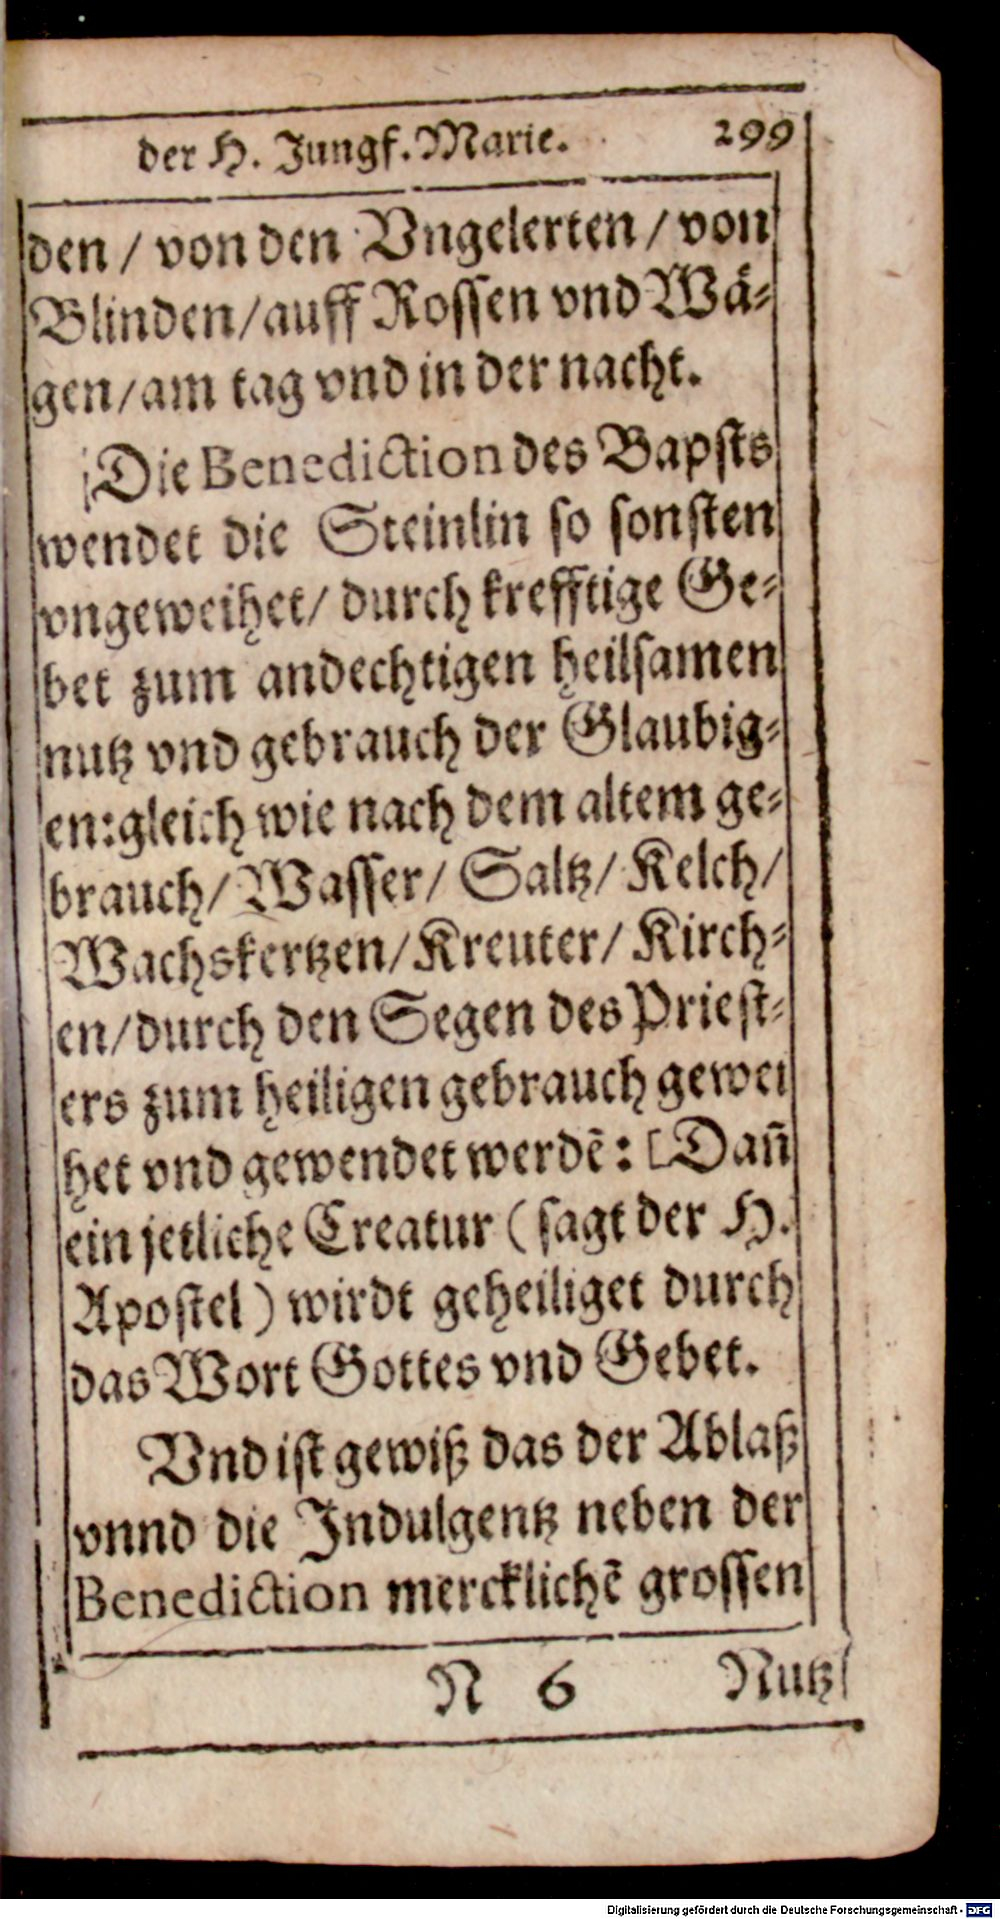 der H. Jungf. Marie. 299
den / von den Vngelerten / von
Blinden / auff Rossen vnd Wä-
gen / am tag vnd in der nacht.
Die Benediction des Bapsts
wendet die Steinlin so sonsten
vngeweihet / durch krefftige Ge-
bet zum andechtigen heilsamen
nutz vnd gebrauch der Glaubig-
en: gleich wie nach dem altem ge-
brauch / Wasser / Saltz / Kelch /
Wachskertzen / Kreuter / Kirch-
en / durch den Segen des Priest-
ers zum heiligen gebrauch gewei
het vnd gewendet werdẽ: [Dañ
ein jetliche Creatur (sagt der H.
Apostel) wirdt geheiliget durch
das Wort Gottes vnd Gebet.
Vnd ist gewiß das der Ablaß
vnnd die Indulgentz neben der
Benediction mercklichẽ grossen
N 6 Nutz
Digitalisierung gefördert durch die Deutsche Forschungsgemeinschaft - DFG